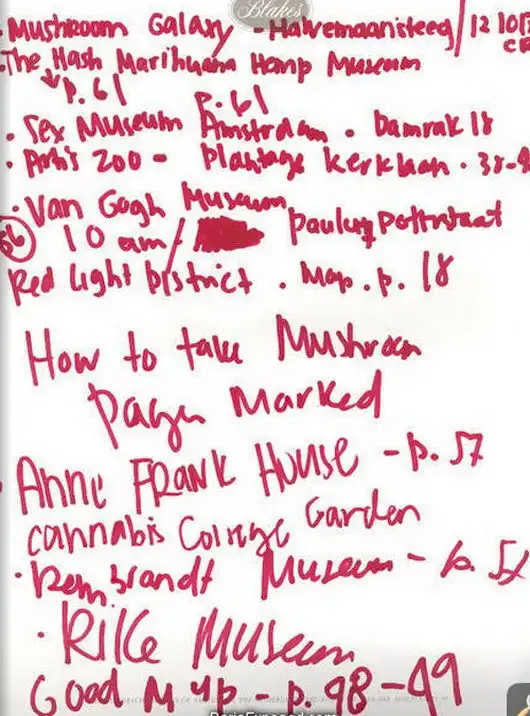 Blakes
• Mushroom Galaxy - Halvemaansteeg / 12 10/12
• The Hash Marihuana Hemp Museum
p. 61
p. 61
• Sex Museum Amstrdam • Damrak 18
• Artis zoo - Plantage Kerklaan • 38-4
• Van Gogh Museum
56 10 am / Paulus Potterstaat
Red Light District • Map • p. 18
How to take Mushroom
Pages Marked
• Anne Frank House - p. 57
Cannabis College Garden
• Rembrandt Museum - p. 52
• Rike Museum
Good Map - p. 48-49